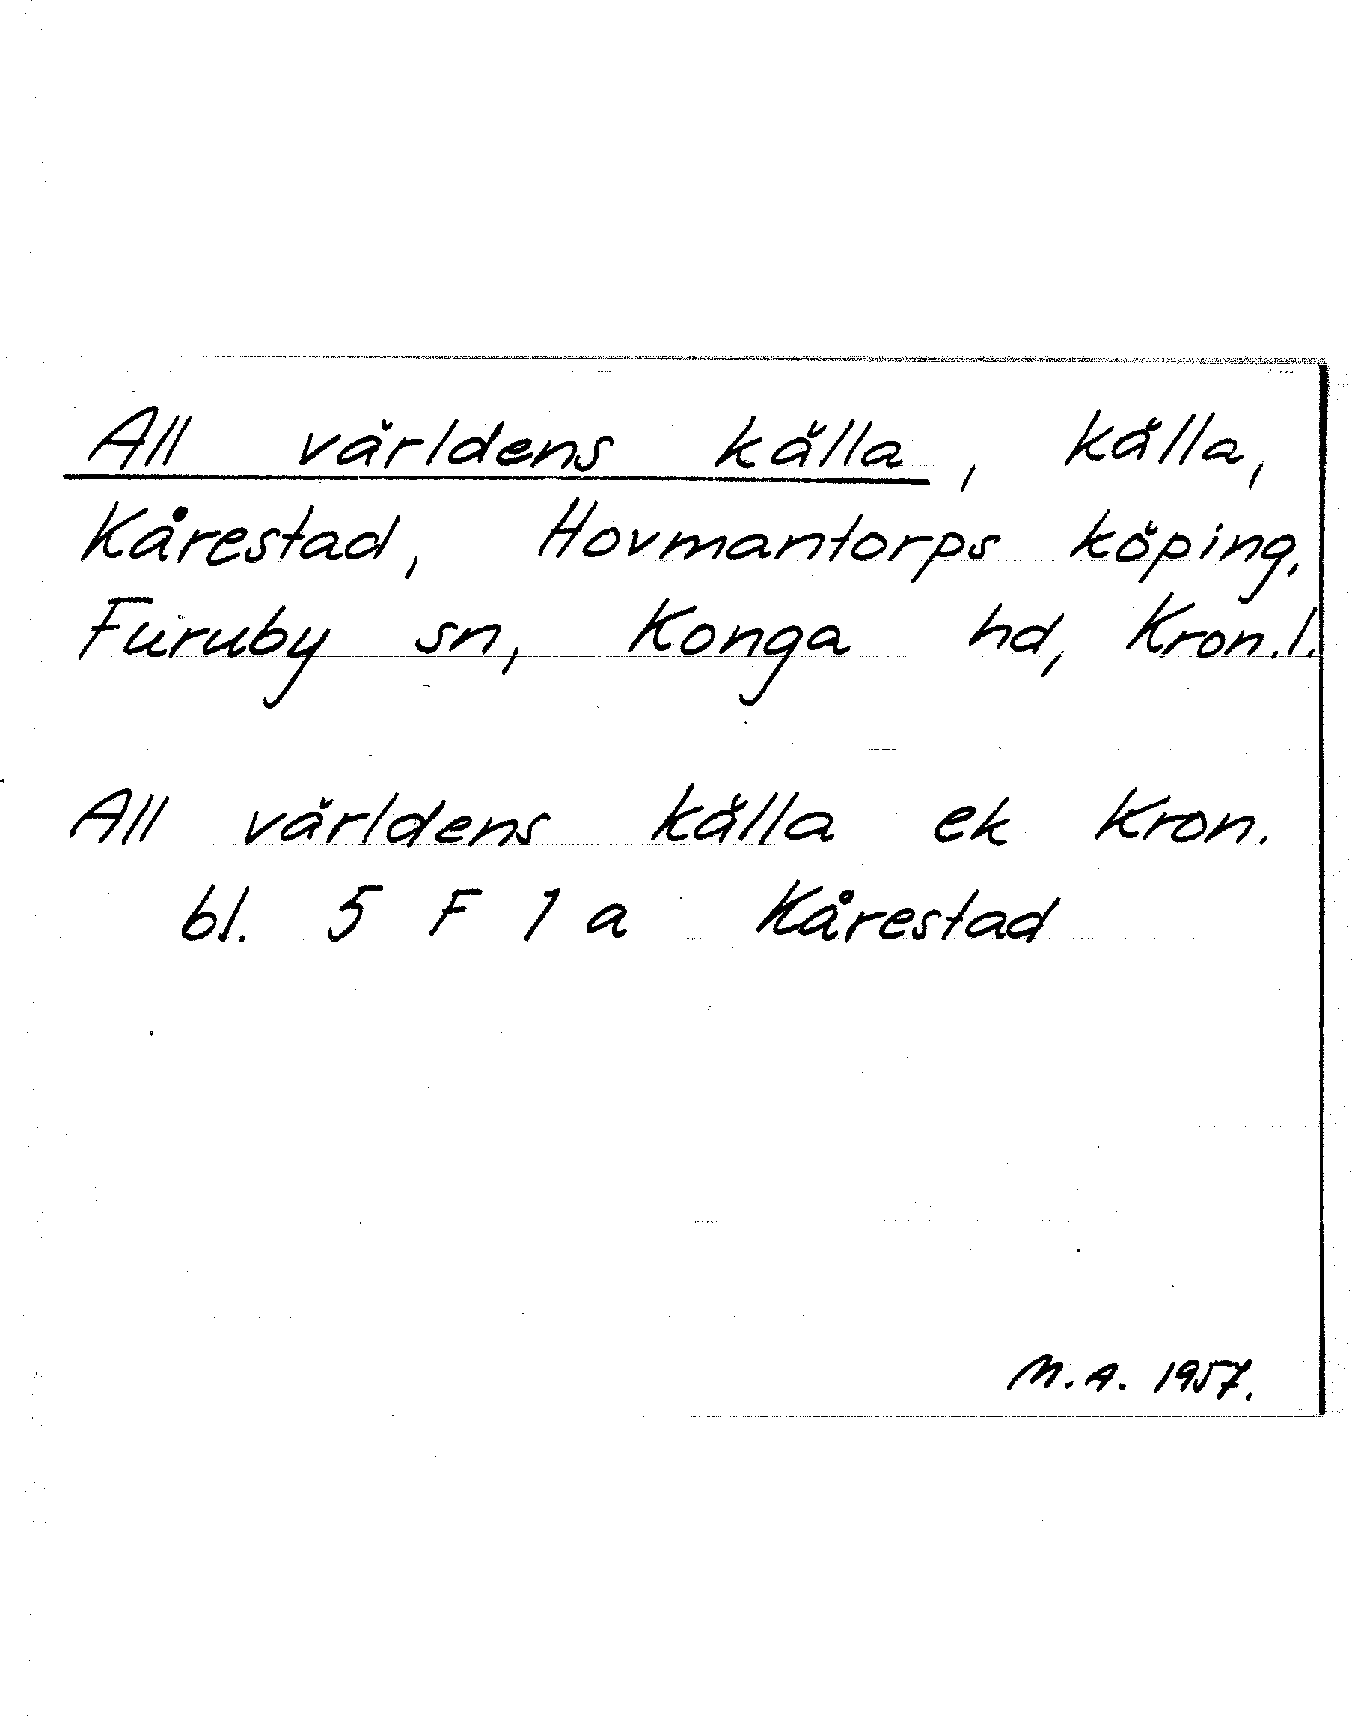 All världens källa, källa,
Kårestad, Hovmantorps köping.
Furuby sn, Konga hd, Kron.l.
All världens källa ek Kron.
bl. 5 F 1 a Kårestad
M.A. 1957.